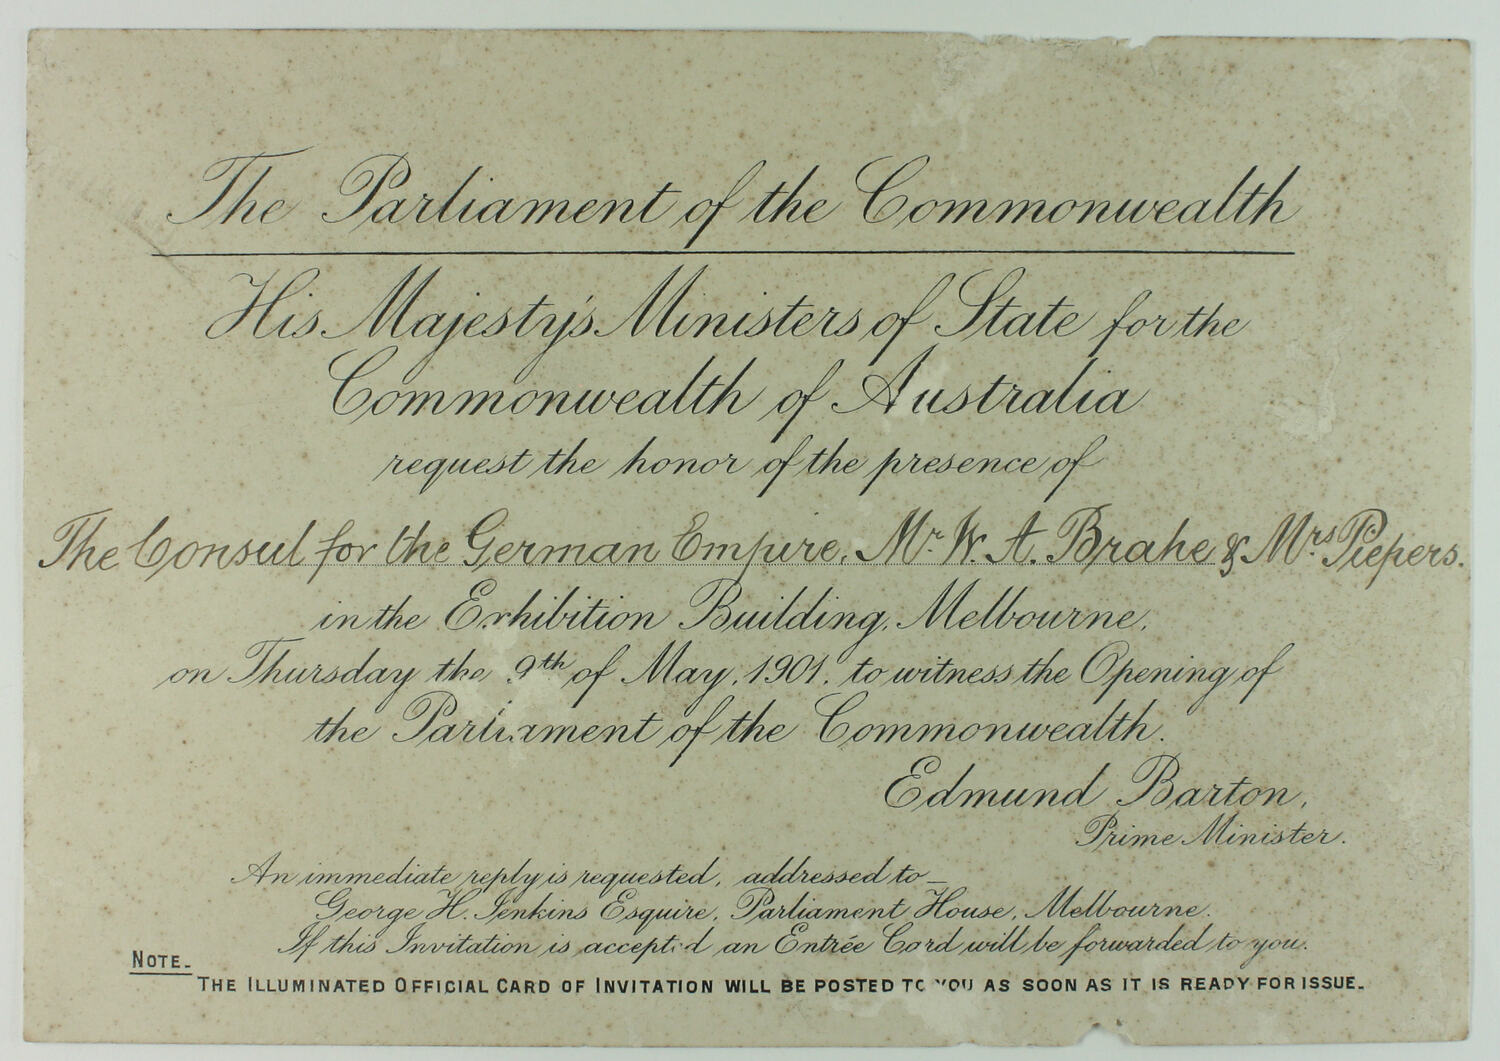 The Parliament of the Commonwealth
His Majesty's Ministers of State for the
Commonwealth of Australia
request the honor of the presence of
The Consul for the German Empire, Mr. W. A. Brahe & Mrs Piepers.
in the Exhibition Building, Melbourne,
on Thursday the 9th of May, 1901, to witness the Opening of
the Parliament of the Commonwealth.
Edmund Barton,
Prime Minister.
An immediate reply is requested, addressed to_
George H. Jenkins Esquire, Parliament House, Melbourne.
If this Invitation is accepted an Entrée Card will be forwarded to you.
NOTE._
THE ILLUMINATED OFFICIAL CARD OF INVITATION WILL BE POSTED TO YOU AS SOON AS IT IS READY FOR ISSUE._